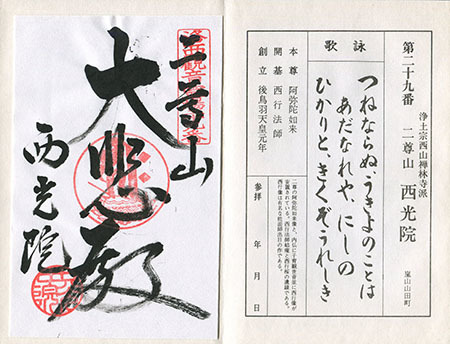 第二十九番
浄土宗西山禅林寺派
二尊山 西光院
嵐山山田町
詠歌
つねならぬ、うきよのことは
あだなれや、にしの
ひかりと、きくぞ、うれしき
本尊 阿弥陀如来
開基 西行法師
創立 後鳥羽天皇元年
参拝 年 月 日
二尊山
大悲殿
西光院